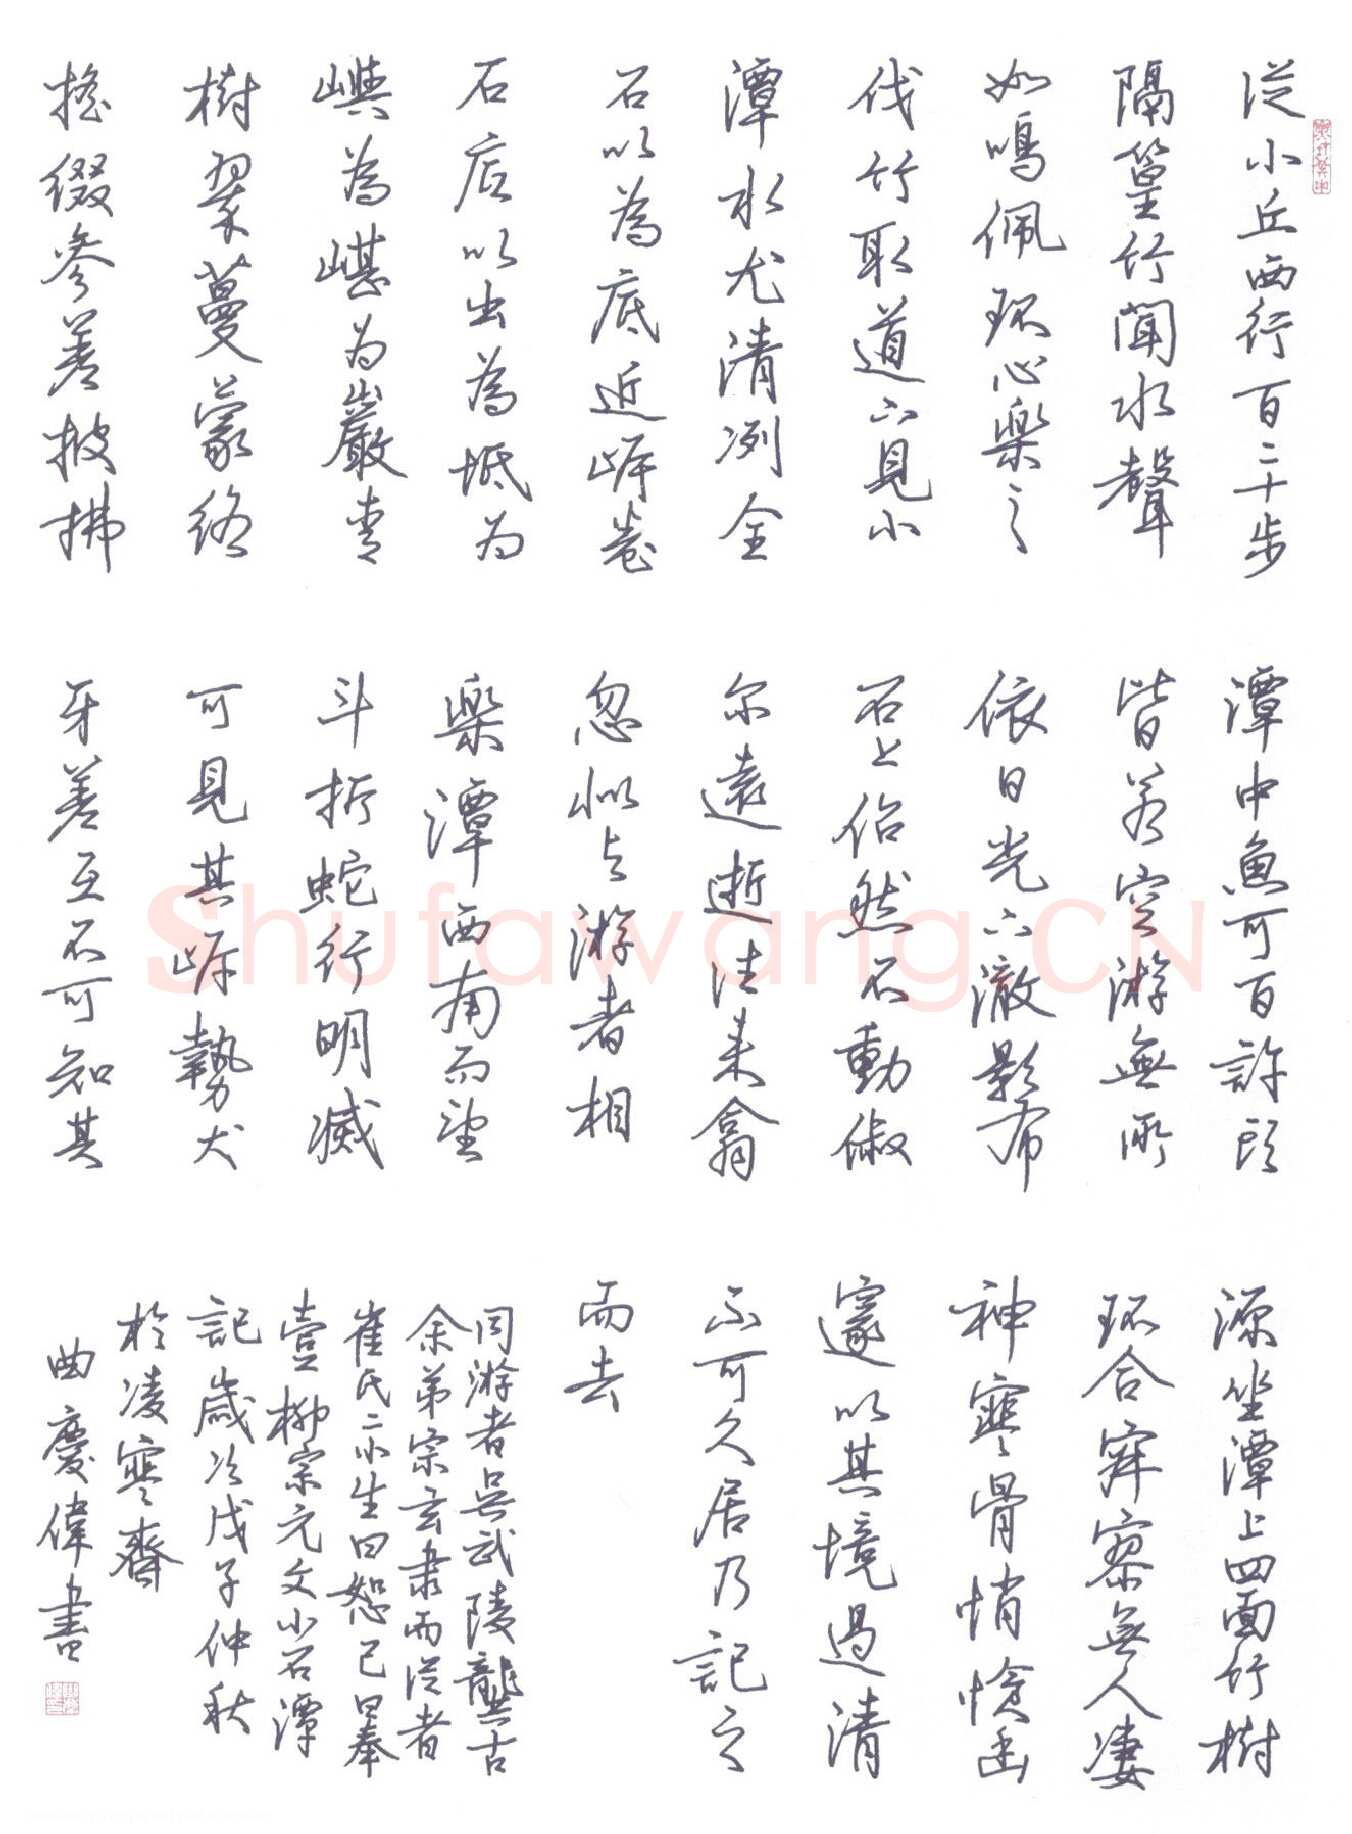 從小丘西行百二十步
隔篁竹聞水聲
如鳴佩环心樂之
伐竹取道下見小
潭水尤清冽全
石以為底近岸卷
石底以出為坻为
嶼為嵁为巖青
樹翠蔓蒙络
搖缀參差披拂
潭中魚可百許头
皆若空游無所
依日光下澈影布
石上佁然不動俶
尔遠逝往来翕
忽似与游者相
樂潭西南而望
斗折蛇行明滅
可見其岸勢犬
牙差互不可知其
源坐潭上四面竹樹
环合寂寥無人凄
神寒骨悄愴幽
邃以其境過清
不可久居乃記之
而去
同游者吳武陵龔古
余弟宗玄隶而從者
崔氏二小生曰恕己曰奉
壹柳宗元文小石潭
記歲次戊子仲秋
於凌寒齋
曲慶偉書
Shufawang.CN